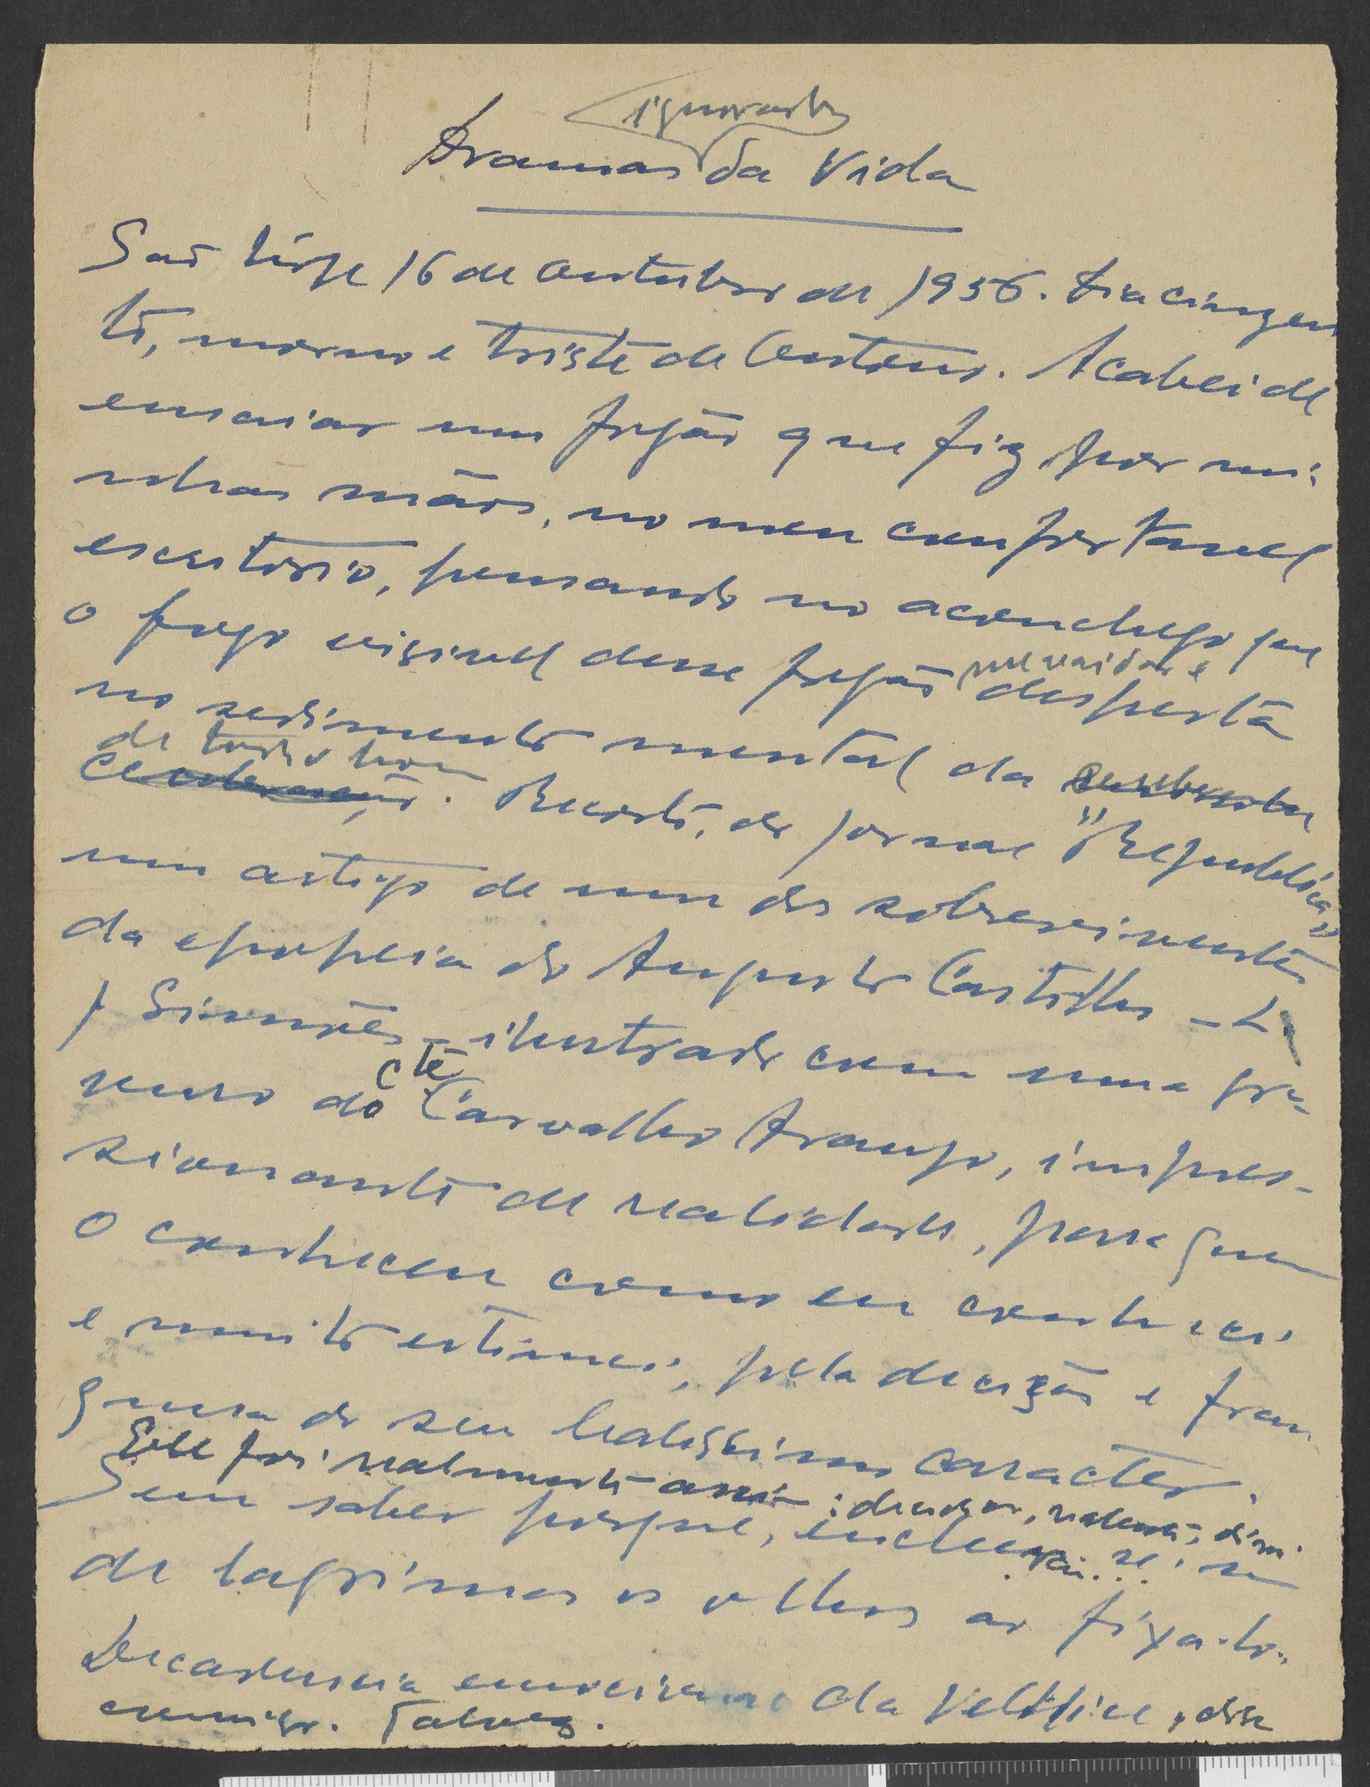 ignorados
Dramas da Vida
São Jorge 16 de Outubro de 1956. Dia cinzen
to, morno e triste de Outono. Acabei de
ensaiar um fogão que fiz por mi-
nhas mãos, no meu confortavel
escritorio, pensando no aconchego que
o fogo visivel desse fogão desperta
no sedimento mental da
de todo o homem
. Recorto, do jornal "Republica"
um artigo de um dos sobreviventes
da epopeia do Augusto Castilho -
Simões - ilustrado com uma gra-
vura do Cte Carvalho Araujo, impres-
sionante de realidade, para quem
o conheceu como eu conheci
e muito estimei, pela decizão e fran
queza do seu lealissimo caracter.
Ele foi realmente assim: decisor, valente,
Sem saber porque, encheram-se-me
de lagrimas os olhos ao fixa-lo.
Decadencia da Velhice, disse
comigo. Talvez.